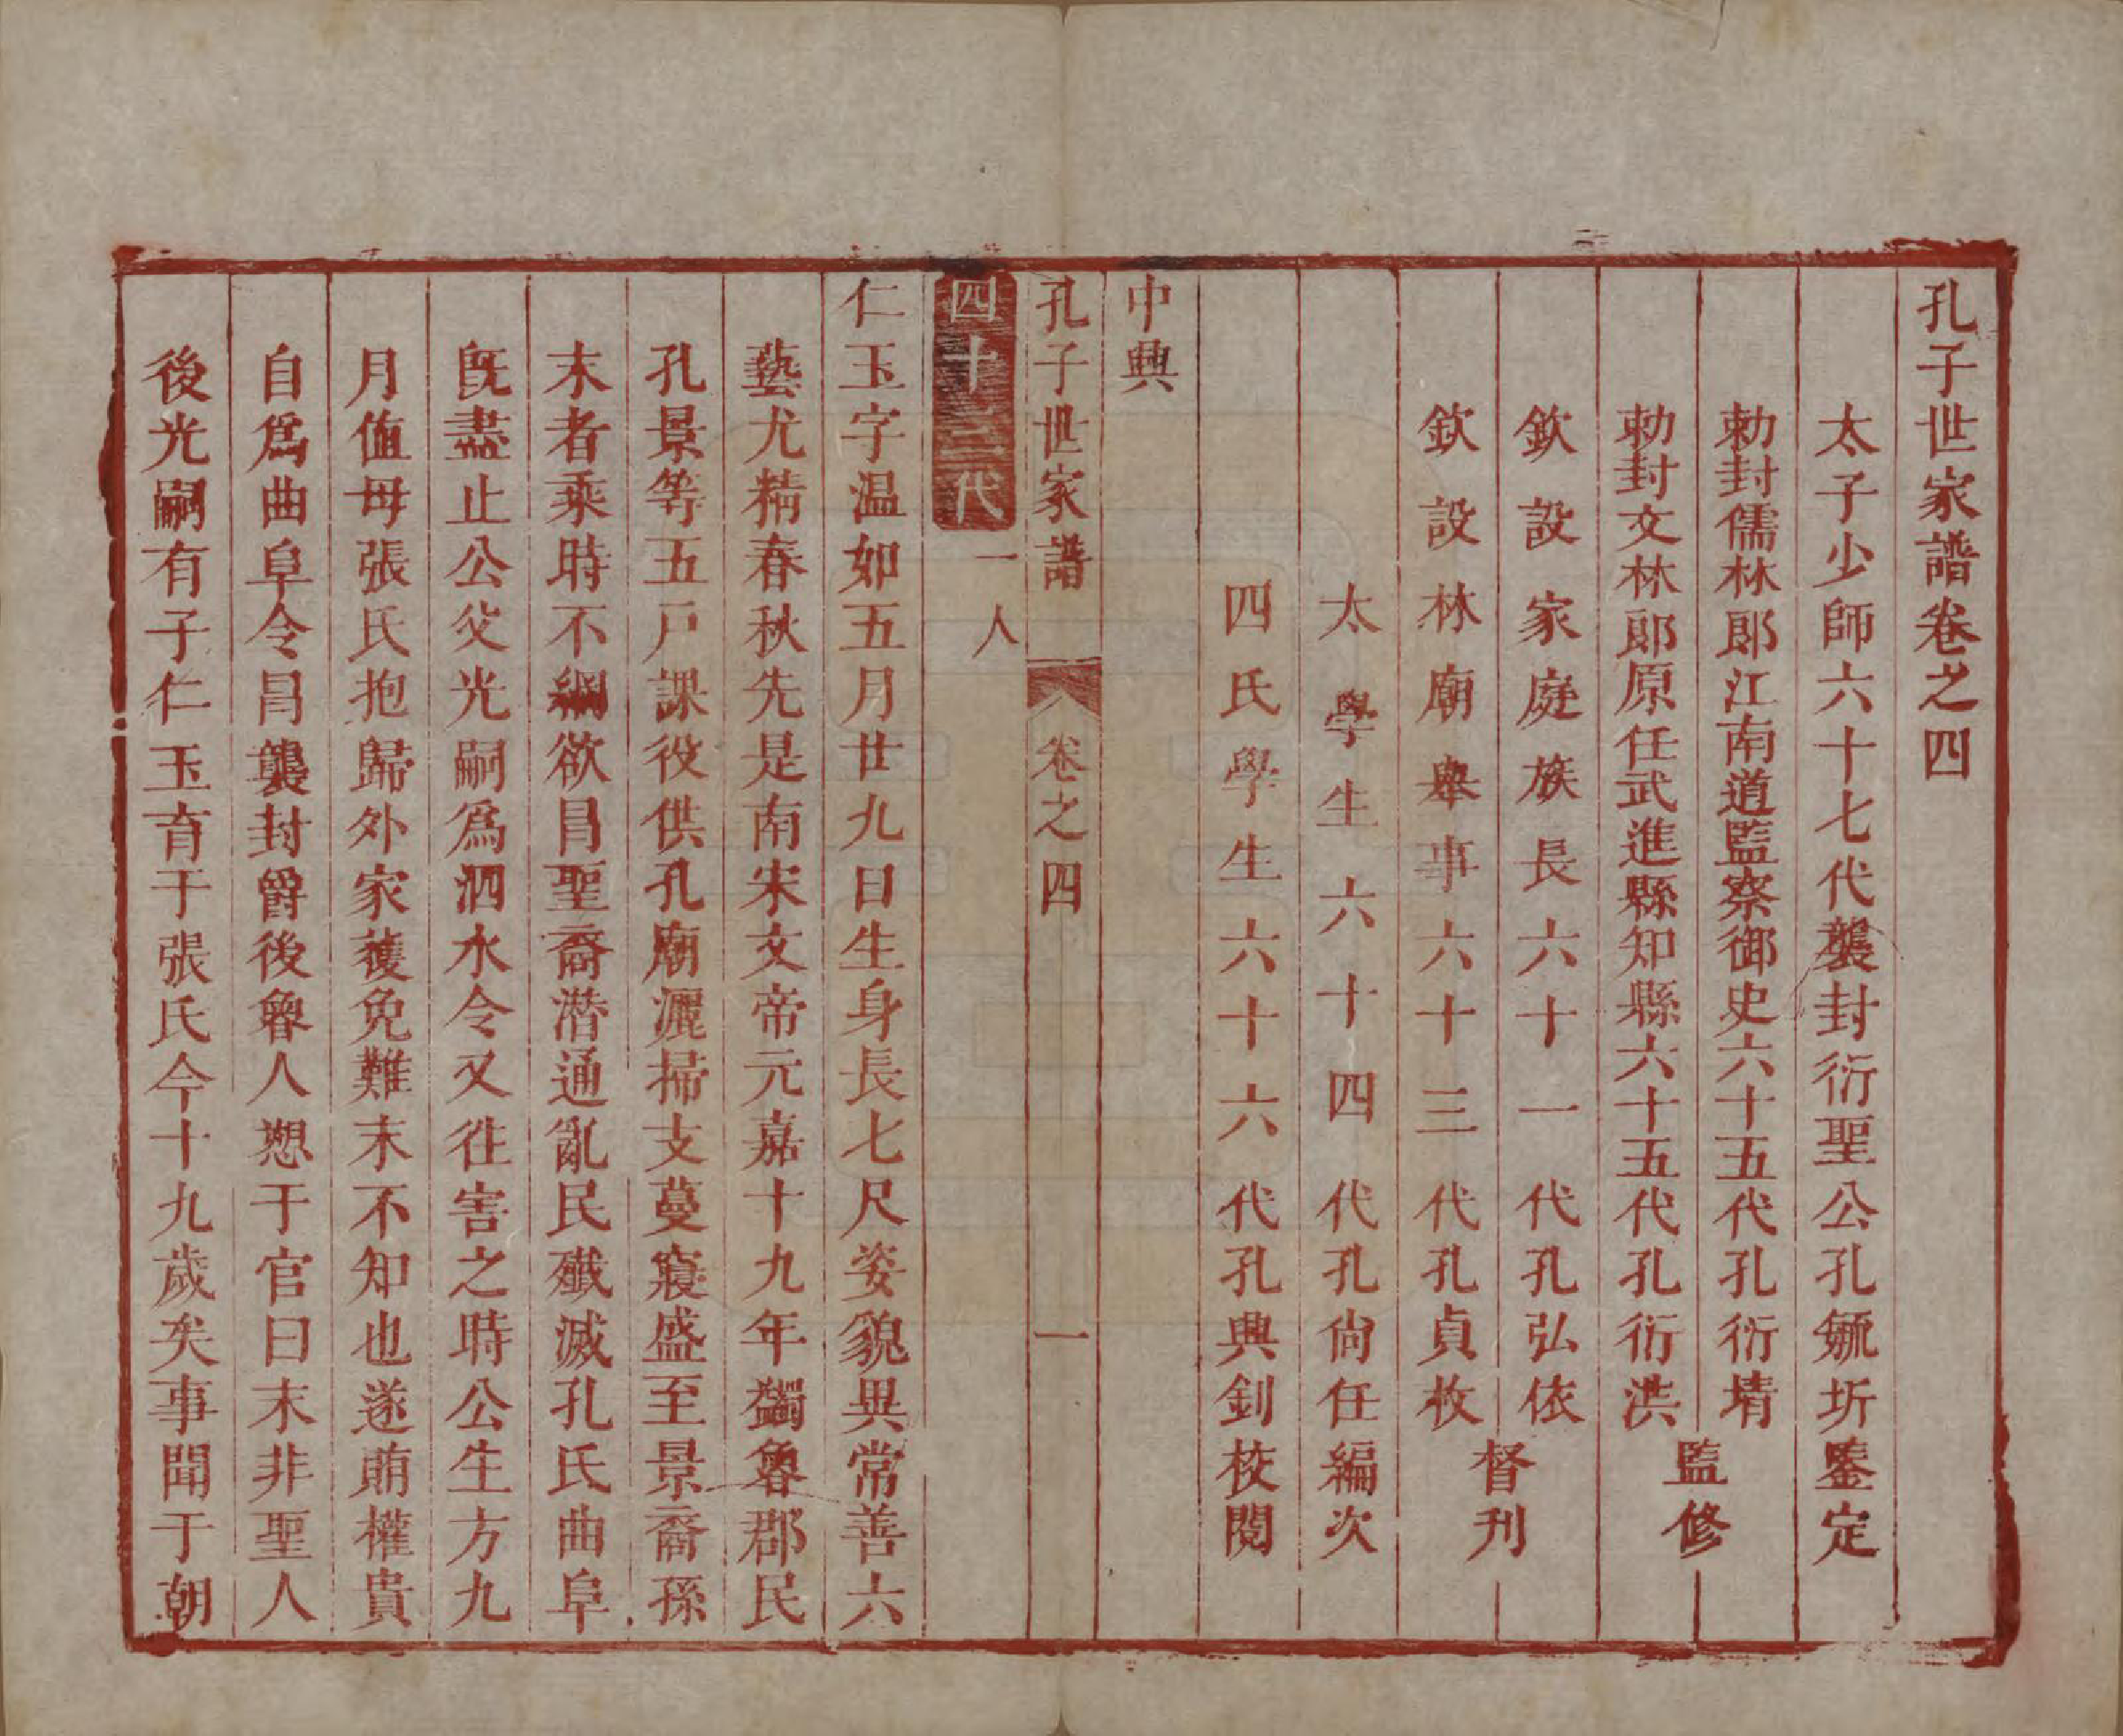 孔子世家譜卷之四
太子少師六十七代襲封衍聖公孔毓圻鑒定
勅封儒林郎江南道監察御史六十五代孔衍㙷
勅封文林郎原任武進縣知縣六十五代孔衍洪
監修
欽設家庭族長六十一代孔弘依
欽設林廟舉事六十三代孔貞枚
督刊
太學生六十四代孔尙任編次
四氏學生六十六代孔興釗校閱
中興
孔子世家譜 卷之四 一
四十三代 一人
仁玉字温如五月廿九日生身長七尺姿貌異常善六
藝尤精春秋先是南宋文帝元嘉十九年蠲魯郡民
孔景等五戸課役供孔廟灑掃支蔓寖盛至景裔孫
末者乘時不綱欲冒聖裔潜通亂民殱滅孔氏曲阜
旣盡止公父光嗣爲泗水令又徃害之時公生方九
月值母張氏抱歸外家獲免難末不知也遂賄權貴
自爲曲阜令冒襲封爵後魯人愬于官曰末非聖人
後光嗣有子仁玉育于張氏今十九歲矣事聞于朝